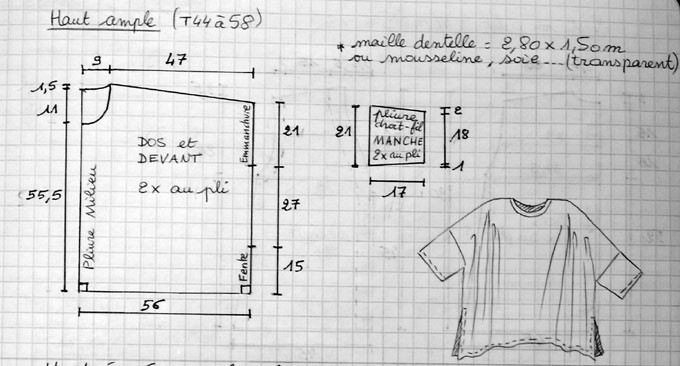 Haut ample (T44 à 58)
* maille dentelle = 2,80 x 1,50m
ou mousseline, soie... (transparent)
9
47
1,5
11
55,5
DOS et
DEVANT
2x au pli
Pliure Milieu
Emmanchure
Fente
21
27
15
56
21
pliure
droit-fil
MANCHE
2x au pli
2
18
1
17